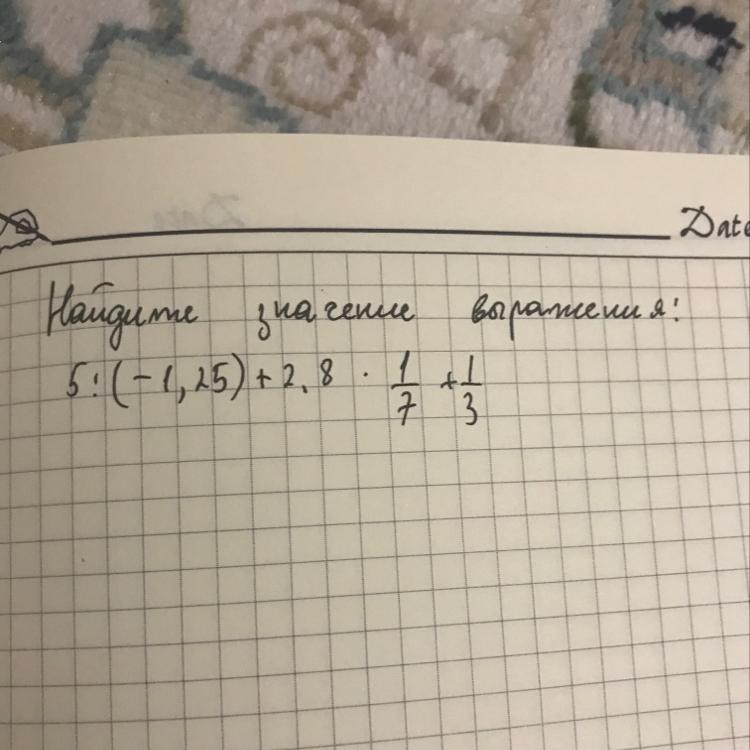 Date
Найдите значение выражения:
5:(-1,25)+2,8 · 1/7 + 1/3